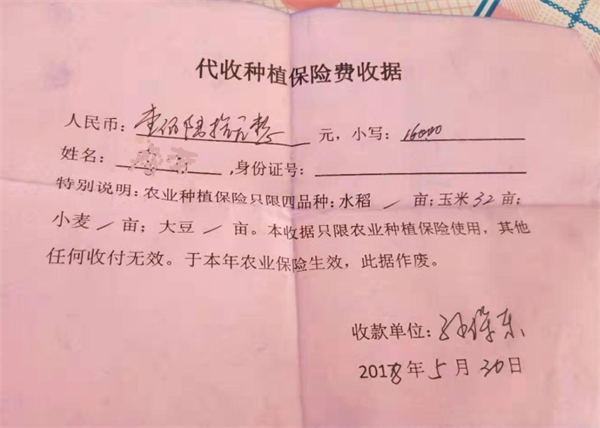 代收种植保险费收据
人民币：壹佰陆拾元整元，小写：16000
姓名：，身份证号：
特别说明：农业种植保险只限四品种：水稻／亩；玉米32亩；
小麦／亩；大豆／亩。本收据只限农业种植保险使用，其他
任何收付无效。于本年农业保险生效，此据作废。
收款单位：孙保东
2018年5月30日